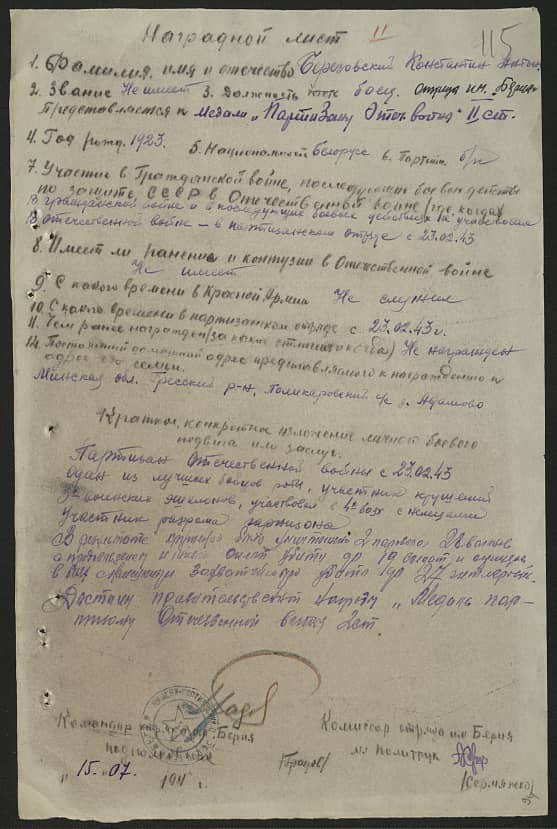 Наградной лист
II
115
1. Фамилия, имя и отчество Березовский Константин
2. Звание Не имеет 3. Должность боец. отряда им. Берия
Представляется к медали "Партизану Отеч. войны" II ст.
4. Год рожд. 1923. 5. Национальность Белорус 6. Партия б/п
7. Участие в Гражданской войне, последующих боевых действ.
по защите СССР в Отечественной войне (где когда)
В гражданской войне и в последующих боевых действиях не участвовал
В отечественной войне – в партизанском отряде с 23.02.43
8. Имеет ли ранения и контузии в Отечественной войне
Не имеет
9. С какого времени в Красной Армии Не служил
10. С какого времени в партизанском отряде с 23.02.43 г.
11. Чем ранее награжден (за какие отличия) Не награжден
Постоянный домашний адрес представляемого к награждению и
адрес его семьи.
Минская обл. Гресский р-н, с/с д. Адамово
Краткое, конкретное изложение личного боевого
подвига или заслуг.
Партизан Отечественной войны с 23.02.43
один из лучших бойцов роты, участник крушений
3х воинских эшелонов, участвовал в 4х боях с немцами
участник разгрома гарнизона
В результате крушений было уничтожено 2 паровоза 22 вагона
убито до 10 солдат и офицеров
в боях с немецкими захватчиками убито до 27 гитлеровцев.
Достоин правительственной награды "Медаль пар-
тизану Отечественной войны 2 ст.
Командир отр. им. Берия
Комиссар отряда им Берия
мл политрук
"15".07. 194 г.